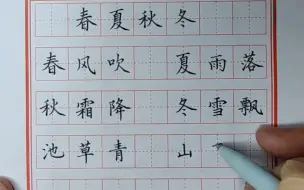 春夏秋冬
春风吹 夏雨落
秋霜降 冬雪飘
池草青 山